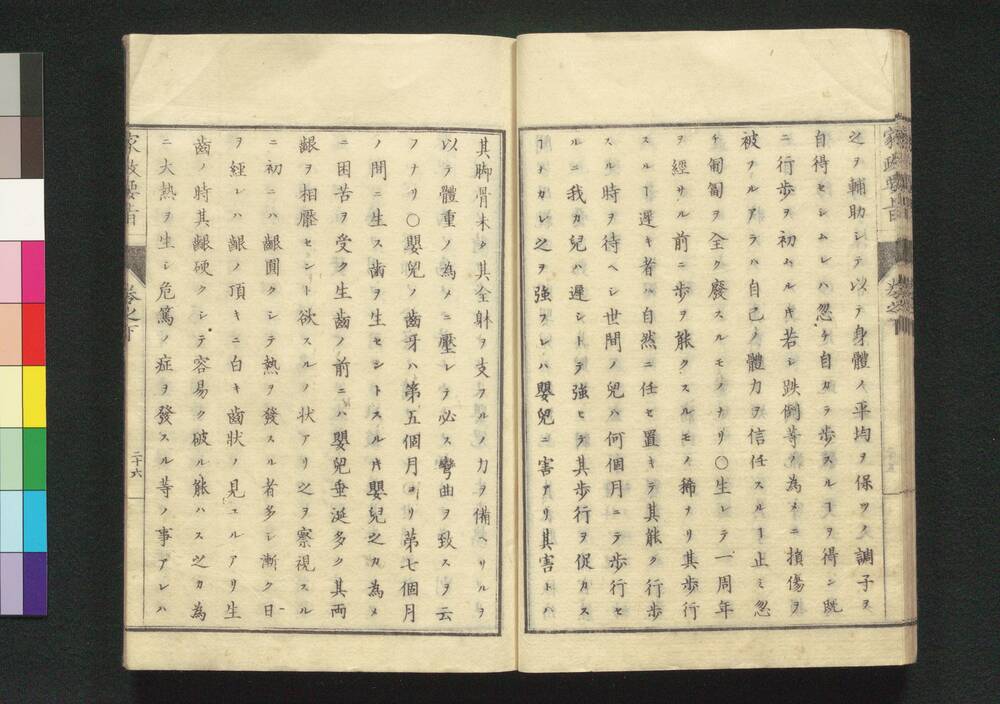 之ヲ輔助シテ以テ身體ノ平均ヲ保ツノ調子ヲ
自得セシムレハ忽ケ自カラ歩スルヿヲ得ン既
ニ行歩ヲ初ムルキ若シ跌倒等ノ為メニ損傷ヲ
被フルアラハ自己ノ體力ヲ信任スルヿ止ミ忽
チ匍匐ヲ全ク廢スルモノナリ〇生レテ一周年
ヲ經サル前ニ歩ヲ能クスルモノ稀ナリ其歩行
スルヿ遲キ者ハ自然ニ任セ置キテ其能ク行歩
スル時ヲ待ヘシ世間ノ兒ハ何個月ニテ歩行セ
ルニ我カ兒ハ遲シトテ強ヒテ其歩行ヲ促カス
ヿナカレ之ヲ強フレハ嬰兒ニ害アリ其害トハ
其脚骨未タ其全身ヲ支フルノ力ヲ備ヘサルヲ
以テ體重ノ為メニ壓レテ必ス彎曲ヲ致スヲ云
フナリ〇嬰兒ノ齒牙ハ第五個月ヨリ第七個月
ノ間ニ生ス齒ヲ生セントスルキ嬰兒之カ為メ
ニ困苦ヲ受ク生齒ノ前ニハ嬰兒垂涎多ク其両
齦ヲ相壓セント欲スルノ状アリ之ヲ察視スル
ニ初ニハ齦圓クシテ熱ヲ發スル者多シ漸ク日
ヲ經レハ齦ノ頂キニ白キ齒状ノ見ユルアリ生
齒ノ時其齦硬クシテ容易ク破ル能ハス之カ為
ニ大熱ヲ生シ危篤ノ症ヲ發スル等ノ事アレハ
家政要旨
卷之下
二十六